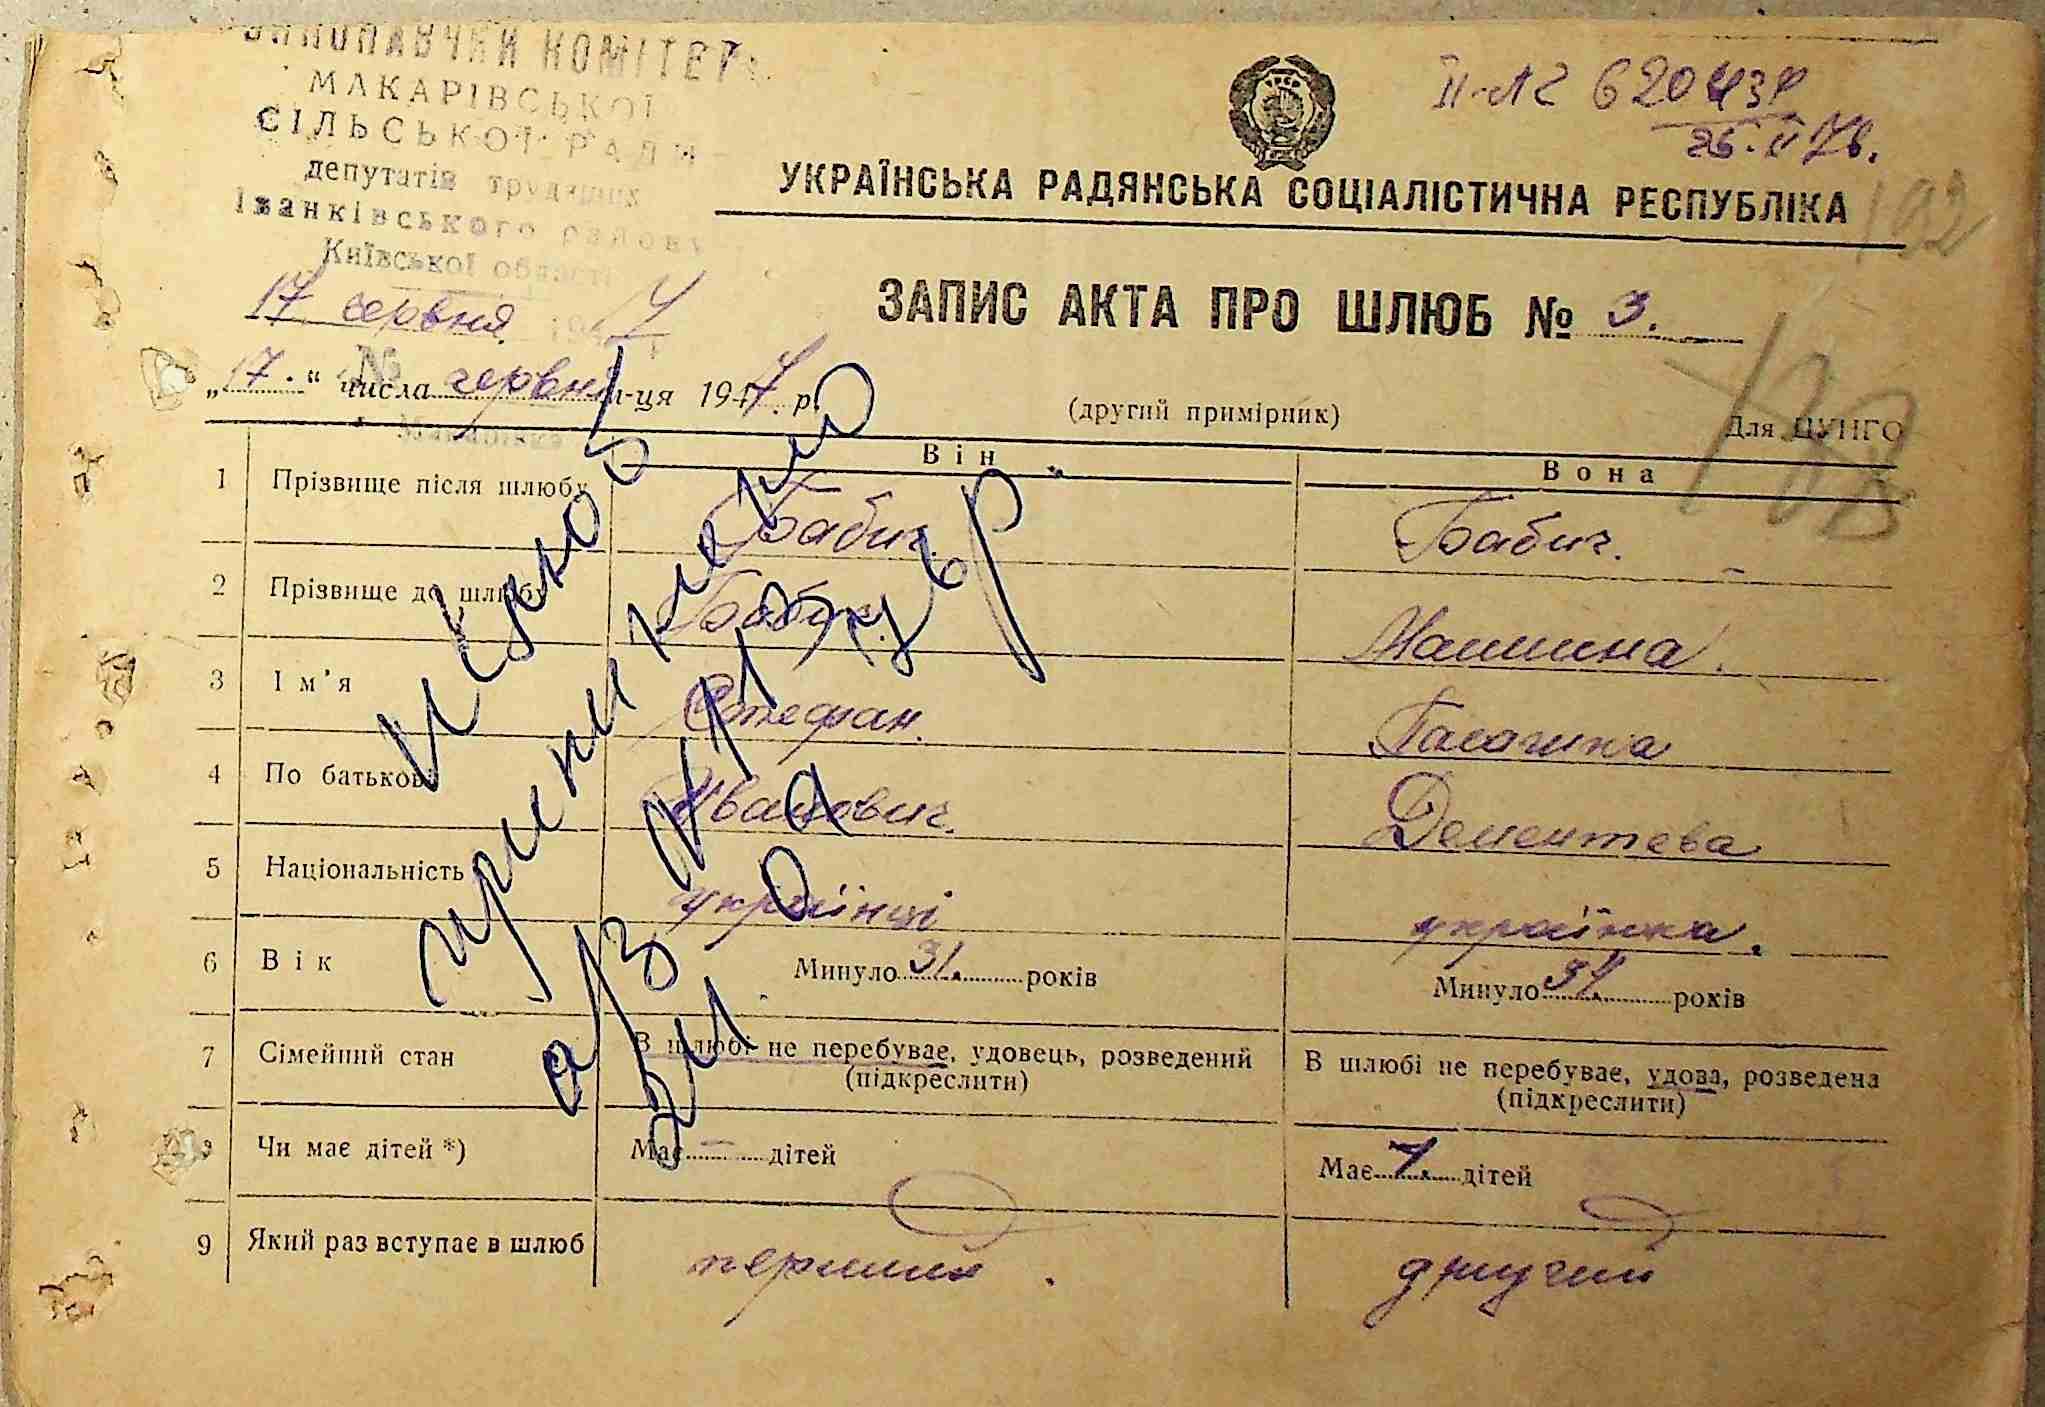 ВИКОНАВЧИЙ КОМІТЕТ
МАКАРІВСЬКОЇ
СІЛЬСЬКОЇ РАДИ
депутатів трудящих
Іванківського району
Київської області
17 червня 1947
№
Макарівка
II-ЛС 620439
26.II 76.
УРСР
УКРАЇНСЬКА РАДЯНСЬКА СОЦІАЛІСТИЧНА РЕСПУБЛІКА
192
ЗАПИС АКТА ПРО ШЛЮБ № 3.
„17.“ числа червня м-ця 1947 р.
(другий примірник)
Для ЦУНГО
Він
Вона
1 Прізвище після шлюбу Бабич. Бабич.
2 Прізвище до шлюбу Бабич Машина.
3 Ім'я Стефан.
4 По батькові Иванович. Дементева
5 Національність українці українка.
6 Вік Минуло 31. років Минуло 34. років
7 Сімейний стан В шлюбі не перебуває, удовець, розведений (підкреслити) В шлюбі не перебуває, удова, розведена (підкреслити)
8 Чи має дітей *) Має – дітей Має 1. дітей
9 Який раз вступає в шлюб перший. другий